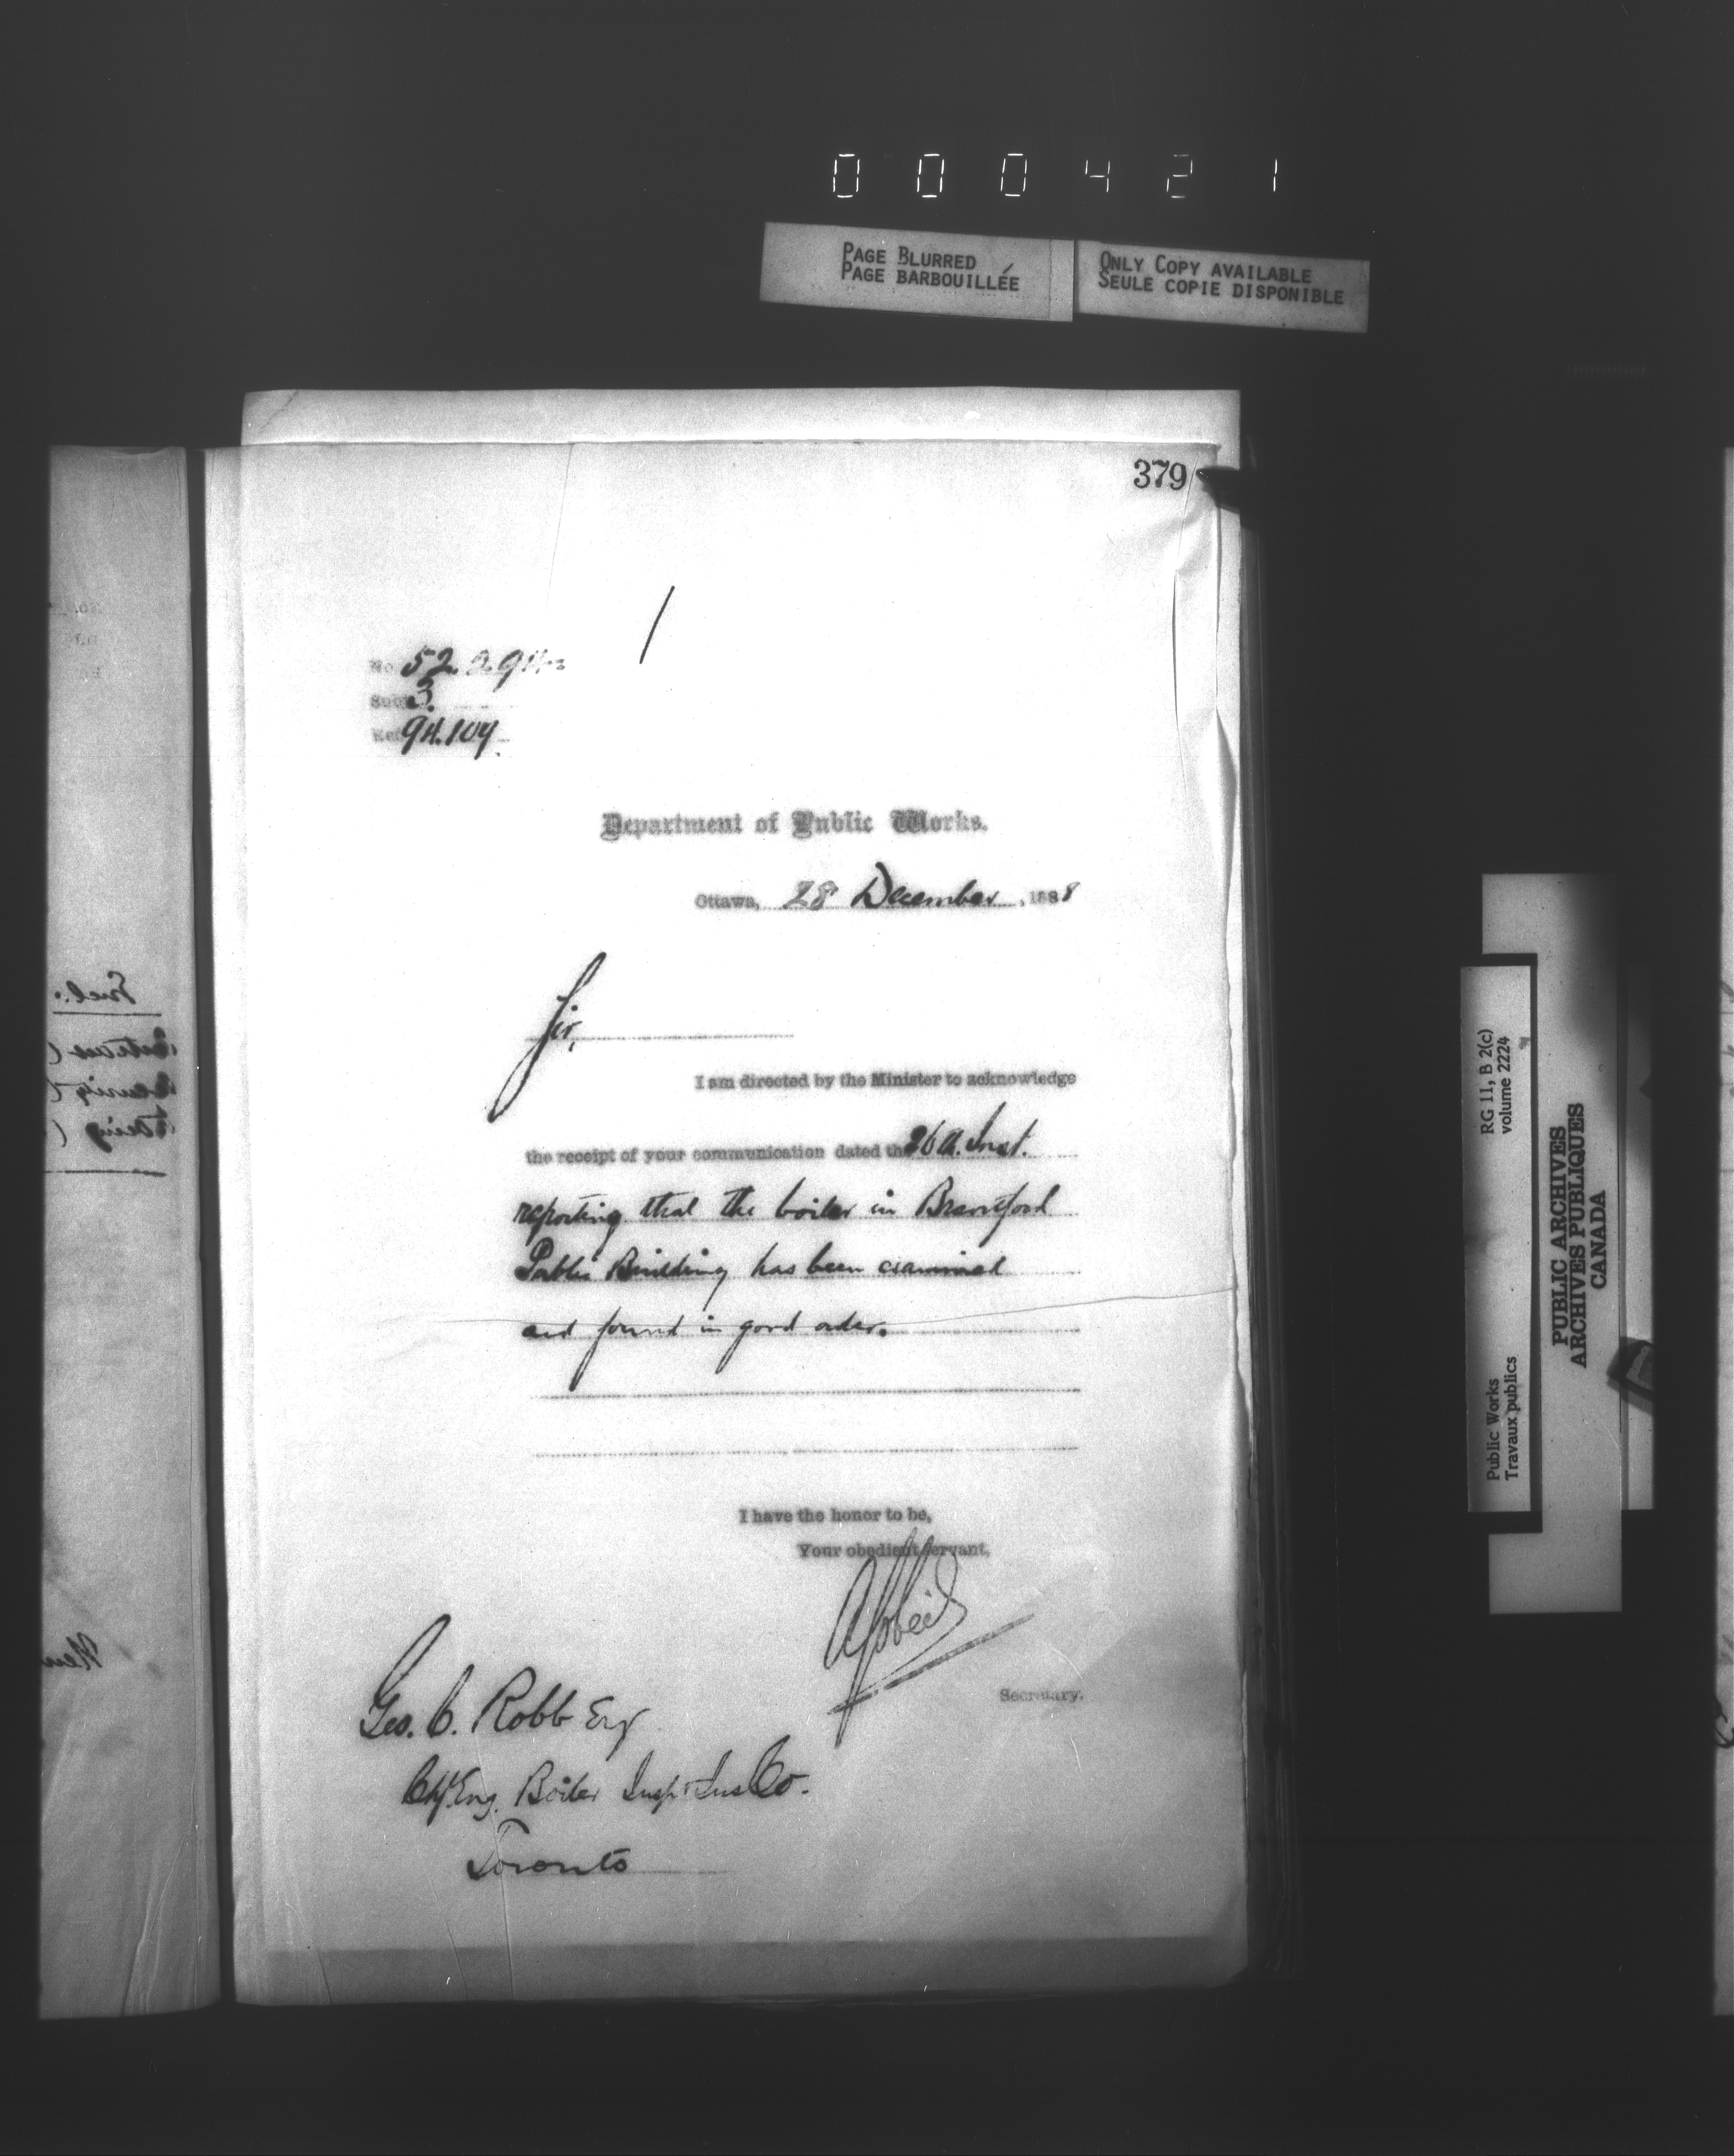 000421
PAGE BLURRED
PAGE BARBOUILLÉE
ONLY COPY AVAILABLE
SEULE COPIE DISPONIBLE
379
No. 52.294
Subj. 3.
Ref. 94.104
Department of Public Works.
Ottawa, 28 December, 1888
Sir,
I am directed by the Minister to acknowledge
the receipt of your communication dated the 26th. Inst.
reporting that the boiler in Brantford
Public Building has been examined
and found in good order.
I have the honor to be,
Your obedient servant,
Secretary.
Geo. C. Robb Esq
Chf. Eng. Boiler Insp & Ins Co.
Toronto
RG 11, B 2(c)
volume 2224
Public Works
Travaux publics
PUBLIC ARCHIVES
ARCHIVES PUBLIQUES
CANADA